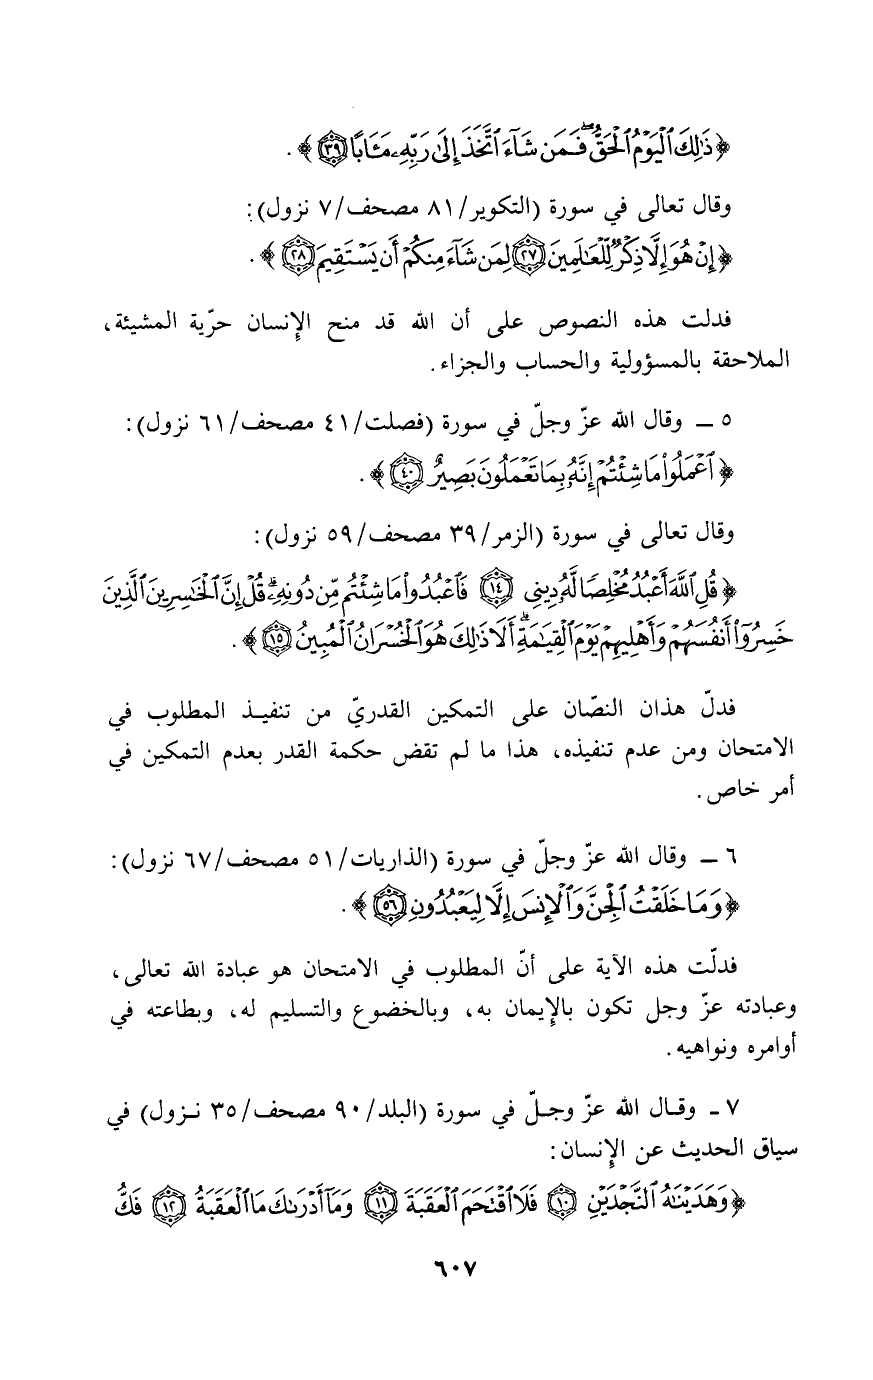 ﴿ذَٰلِكَ ٱلْيَوْمُ ٱلْحَقُّ ۖ فَمَن شَآءَ ٱتَّخَذَ إِلَىٰ رَبِّهِۦ مَـَٔابًا ٣٩﴾.
وقال تعالى في سورة (التكوير/٨١ مصحف/٧ نزول):
﴿إِنْ هُوَ إِلَّا ذِكْرٌ لِّلْعَٰلَمِينَ ٢٧ لِمَن شَآءَ مِنكُمْ أَن يَسْتَقِيمَ ٢٨﴾.
فدلت هذه النصوص على أن الله قد منح الإنسان حرّية المشيئة،
الملاحقة بالمسؤولية والحساب والجزاء.
٥ ــ وقال الله عزّ وجلّ في سورة (فصلت/٤١ مصحف/٦١ نزول):
﴿ٱعْمَلُوا۟ مَا شِئْتُمْ إِنَّهُۥ بِمَا تَعْمَلُونَ بَصِيرٌ ٤٠﴾.
وقال تعالى في سورة (الزمر/٣٩ مصحف/٥٩ نزول):
﴿قُلِ ٱللَّهَ أَعْبُدُ مُخْلِصًا لَّهُۥ دِينِى ١٤ فَٱعْبُدُوا۟ مَا شِئْتُم مِّن دُونِهِۦ ۗ قُلْ إِنَّ ٱلْخَٰسِرِينَ ٱلَّذِينَ
خَسِرُوٓا۟ أَنفُسَهُمْ وَأَهْلِيهِمْ يَوْمَ ٱلْقِيَٰمَةِ ۗ أَلَا ذَٰلِكَ هُوَ ٱلْخُسْرَانُ ٱلْمُبِينُ ١٥﴾.
فدلّ هذان النصّان على التمكين القدريّ من تنفيـذ المطلوب في
الامتحان ومن عدم تنفيذه، هذا ما لم تقض حكمة القدر بعدم التمكين في
أمر خاص.
٦ ــ وقال الله عزّ وجلّ في سورة (الذاريات/٥١ مصحف/٦٧ نزول):
﴿وَمَا خَلَقْتُ ٱلْجِنَّ وَٱلْإِنسَ إِلَّا لِيَعْبُدُونِ ٥٦﴾.
فدلّت هذه الآية على أنّ المطلوب في الامتحان هو عبادة الله تعالى،
وعبادته عزّ وجل تكون بالإيمان به، وبالخضوع والتسليم له، وبطاعته في
أوامره ونواهيه.
٧ ـ وقـال الله عزّ وجـلّ في سورة (البلد/٩٠ مصحف/٣٥ نـزول) في
سياق الحديث عن الإنسان:
﴿وَهَدَيْنَٰهُ ٱلنَّجْدَيْنِ ١٠ فَلَا ٱقْتَحَمَ ٱلْعَقَبَةَ ١١ وَمَآ أَدْرَىٰكَ مَا ٱلْعَقَبَةُ ١٢ فَكُّ
٦٠٧